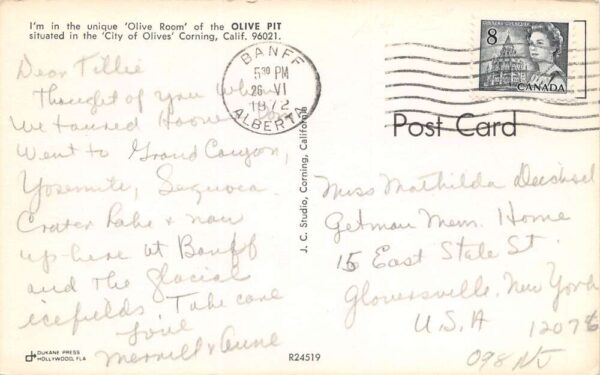 I'm in the unique 'Olive Room' of the OLIVE PIT
situated in the 'City of Olives' Corning, Calif. 96021.
Dear Tillie
Thought of you when
We toured Hoover Dam
Went to Grand Canyon,
Yosemite, Sequoia
Crater Lake & now
up here at Banff
and the glacial
icefields. Take care
Love
Merrill & Anne
DUKANE PRESS
HOLLYWOOD, FLA
R24519
J. C. Studio, Corning, California
BANFF
5 30 PM
26 VI
1972
ALBERTA
8
CANADA
Post Card
Miss Mathilda Deichsel
Getman Mem. Home
15 East State St.
Gloversville, New York
U.S.A
12078
098 NJ